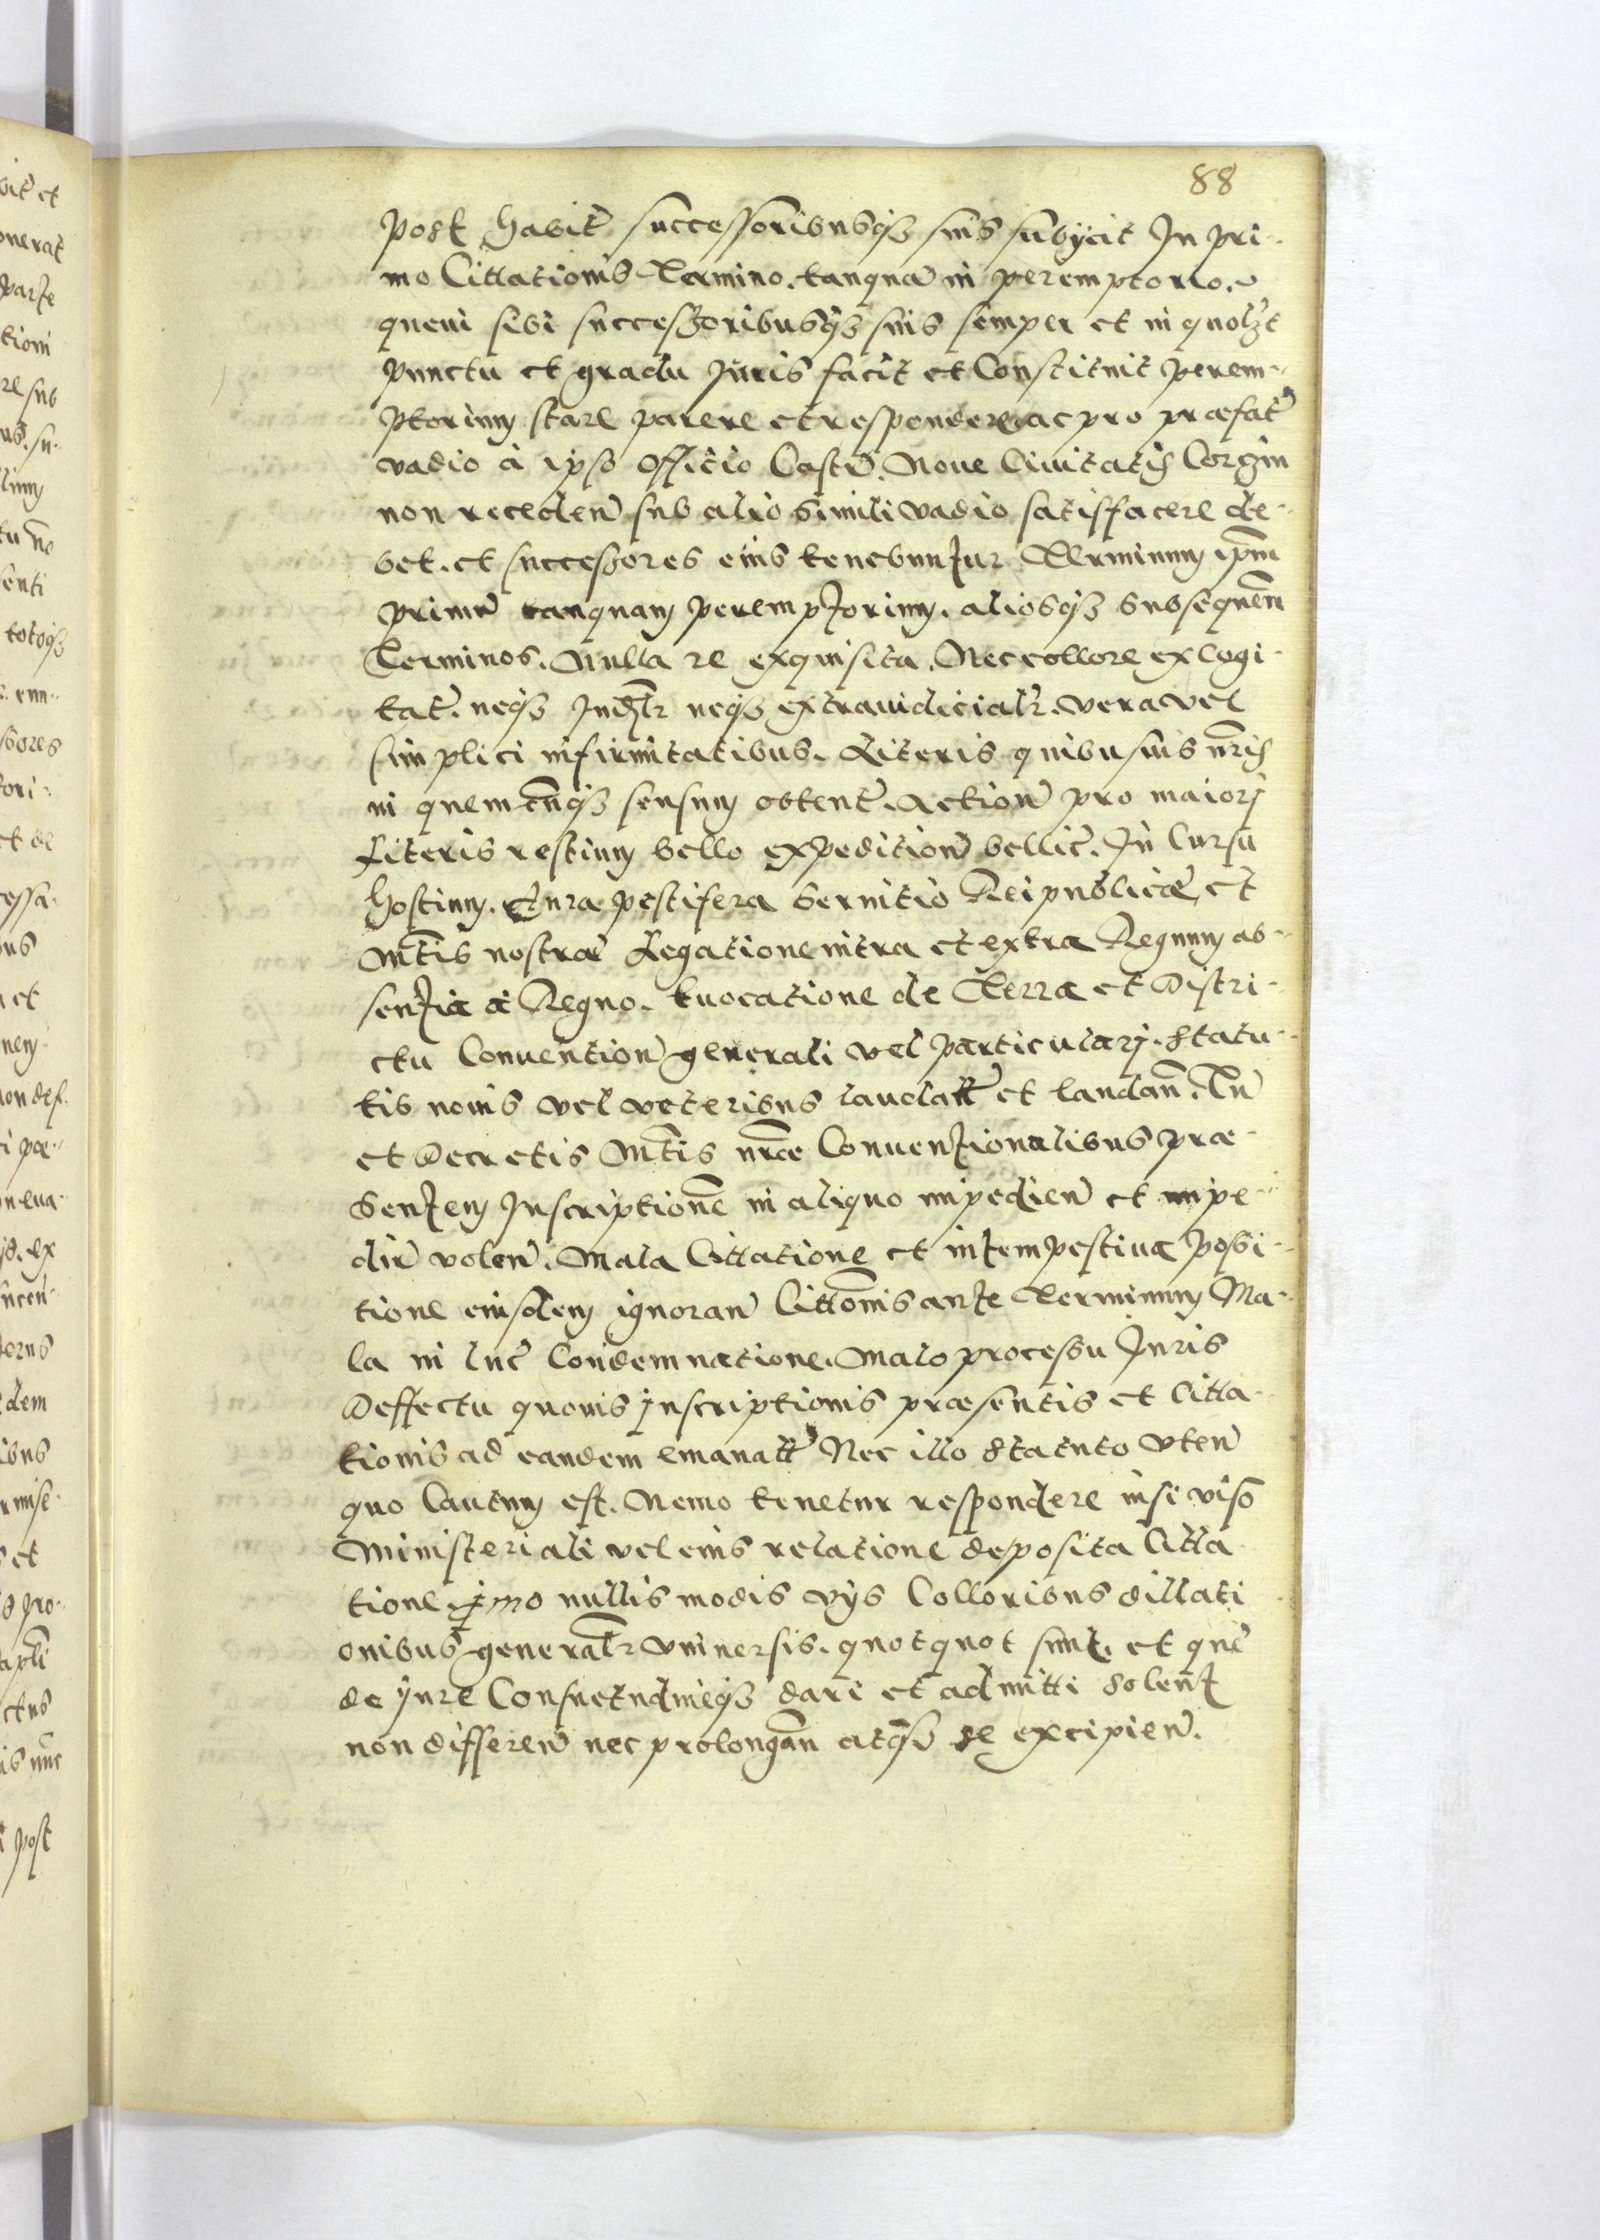 88
post habit successoribusqz suis subijcit In pri-
mo Cittationis Termino. tanqua in peremptorio.
quem sibi successoribusqz suis semper et in quolzt
punctu et gradu Juris facit et Constituit perem-
ptorium stare parere et respondere ac pro præfat
vadio à ipso Officio Castrn Noue Ciuitatis Corczin
non receden sub alio simili vadio satisfacere de-
bet. et successores eius tenebuntur Terminum ipm
primu tanquam peremptorium. aliosqz subsequen
Terminos. Nulla re exquisita. Nec collore excogi-
tat. neqz Judlr neqz extraiudicialr. vera vel
simplici infirmitatibus. Literis quibusuis nris
in quemcunqz sensum obtent. Action pro maiorj
Literis restium bello expedition bellic. In Cursu
hostium. Aura pestifera seruitio Reipublicæ et
Mtis nostræ Legatione intra et extra Regnum ab-
sentia à Regno. Euocatione de Terra et Distri-
ctu Conuention generali vel particularj. Statu-
tis nouis vel veteribus laudatt et laudan. Tn
et Decretis Mtis nræ Conuentionalibus præ-
sentem Inscriptione in aliquo impedien et impe-
dir volen. Mala Cittatione et intempestiua possi-
tione eiusdem ignoran Cittonis ante Terminum Ma-
la in luc Condemnatione. Malo processu Juris
Deffectu quouis Inscriptionis præsentis et Citta-
tionis ad eandem emanatt Nec illo Statuto vten
quo Cautum est. Nemo tenetur respondere nisi viso
Ministeriali vel eius relatione deposita Citta-
tione. jmo nullis modis vijs Colloribus dillati
onibus generalr vniuersis. quotquot sunt. et que
de jure Consuetudineqz dari et admitti solent
non differen nec prolongan atqz se excipien.